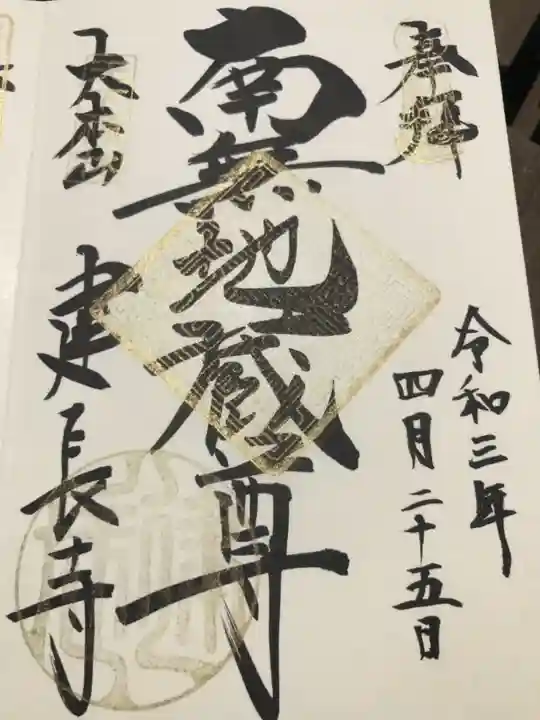 奉拝
令和三年
四月二十五日
南無地蔵尊
大本山
建長寺